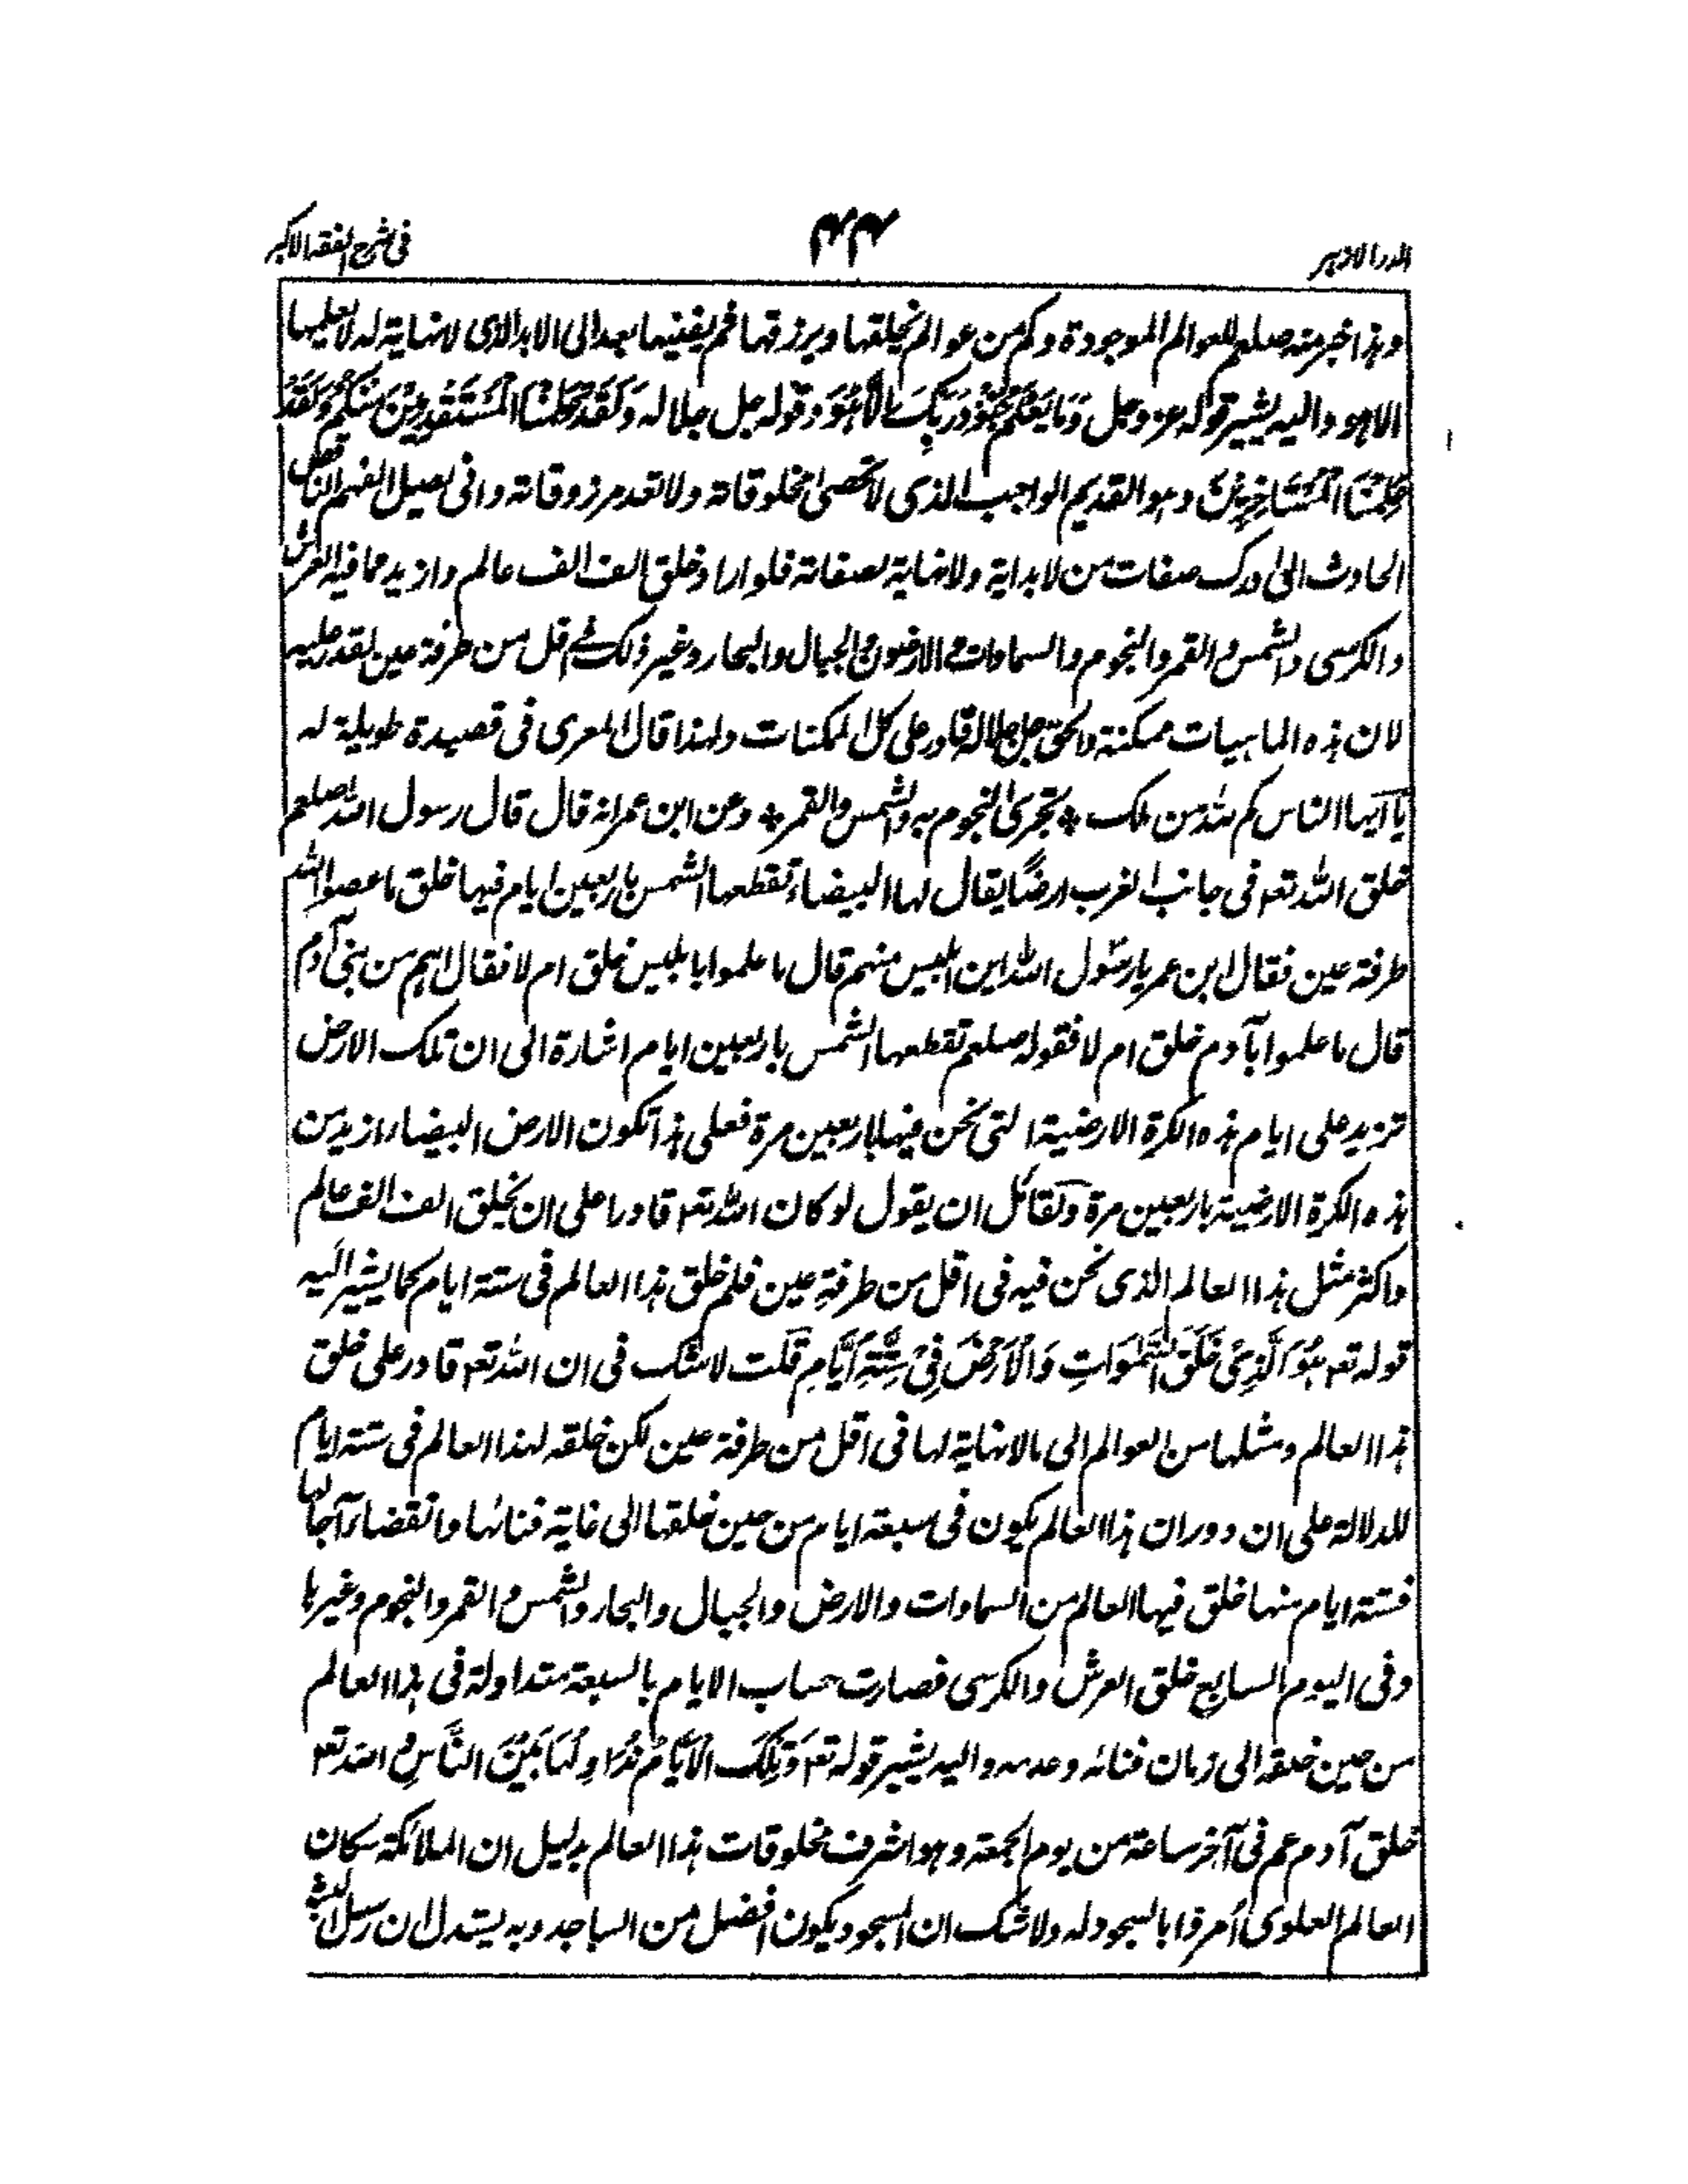 الدر الازهر ٤٤ فى شرح الفقه الاكبر
وهذا خبر منه صلعم للعوالم الموجودة وكم من عوالم يخلقها ويرزقها ثم يفنيها بعد الى الابد الذى لا نهاية له لا يعلمها
الا هو واليه يشير قوله عز وجل وَمَا يَعْلَمُ جُنُوْدَ رَبِّكَ اِلَّا هُوَ وقوله جل جلاله وَلَقَدْ عَلِمْنَا الْمُسْتَقْدِمِيْنَ مِنْكُمْ وَلَقَدْ
عَلِمْنَا الْمُسْتَاخِرِيْنَ وهو القديم الواجب الذى لا تحصى مخلوقاته ولا تعد مرزوقاته وانى يصل الفهم الناقص
الحادث الى درك صفات من لا بداية ولا نهاية لصفاته فلو اراد خلق الف الف عالم وازيد مما فيه العرش
والكرسى والشمس والقمر والنجوم والسماوات والارضون والجبال والبحار وغير ذلك فى اقل من طرفة عين لقدر عليه
لان هذه الماهيات ممكنة والحق جل جلاله قادر على كل الممكنات ولهذا قال المعرى فى قصيدة طويلة له
يا ايها الناس كم لله من ملك ٭ تجرى النجوم به والشمس والقمر ٭ وعن ابن عمر انه قال قال رسول الله صلعم
خلق الله تعم فى جانب الغرب ارضًا يقال لها البيضاء تقطعها الشمس باربعين ايام فيها خلق ما عصوا الله
طرفة عين فقال ابن عمر يا رسول الله اين ابليس منهم قال ما علموا بابليس خلق ام لا فقال اهم من بنى آدم
قال ما علموا آدم خلق ام لا فقوله صلعم تقطعها الشمس باربعين ايام اشارة الى ان تلك الارض
تزيد على ايام هذه الكرة الارضية التى نحن فيها باربعين مرة فعلى هذا تكون الارض البيضاء ازيد من
هذه الكرة الارضية باربعين مرة ولقائل ان يقول لو كان الله تعم قادرا على ان يخلق الف الف عالم
واكثر مثل هذا العالم الذى نحن فيه فى اقل من طرفة عين فلم خلق هذا العالم فى ستة ايام كما يشير اليه
قوله تعم هُوَ الَّذِىْ خَلَقَ السَّمٰوَاتِ وَالْاَرْضَ فِىْ سِتَّةِ اَيَّامٍ قلت لا شك فى ان الله تعم قادر على خلق
هذا العالم ومثلها من العوالم الى ما لا نهاية لها فى اقل من طرفة عين لكن خلقه لهذا العالم فى ستة ايام
للدلالة على ان دوران هذا العالم يكون فى سبعة ايام من حين خلقها الى غاية فنائها وانقضاء آجالها
فستة ايام منها خلق فيها العالم من السماوات والارض والجبال والبحار والشمس والقمر والنجوم وغيرها
وفى اليوم السابع خلق العرش والكرسى فصارت حساب الايام بالسبعة متداولة فى هذا العالم
من حين خلقه الى زمان فنائه وعدمه واليه يشير قوله تعم وَتِلْكَ الْاَيَّامُ نُدَاوِلُهَا بَيْنَ النَّاسِ والله تعم
خلق آدم عم فى آخر ساعة من يوم الجمعة وهو اشرف مخلوقات هذا العالم بدليل ان الملائكة سكان
العالم العلوى اُمروا بالسجود له ولا شك ان المسجود يكون افضل من الساجد وبه يستدل ان رسل البشر